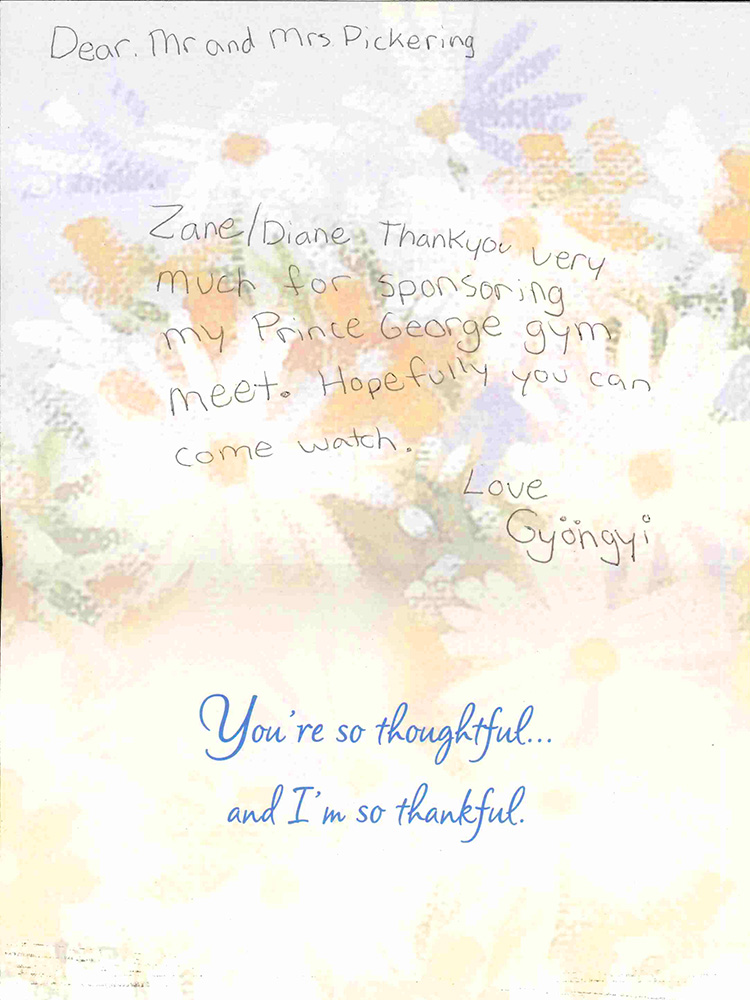 Dear. Mr and Mrs Pickering
Zane/Diane Thankyou very
much for sponsoring
my Prince George gym
meet. Hopefully you can
come watch.
Love
Gyöngyi
You're so thoughtful...
and I'm so thankful.